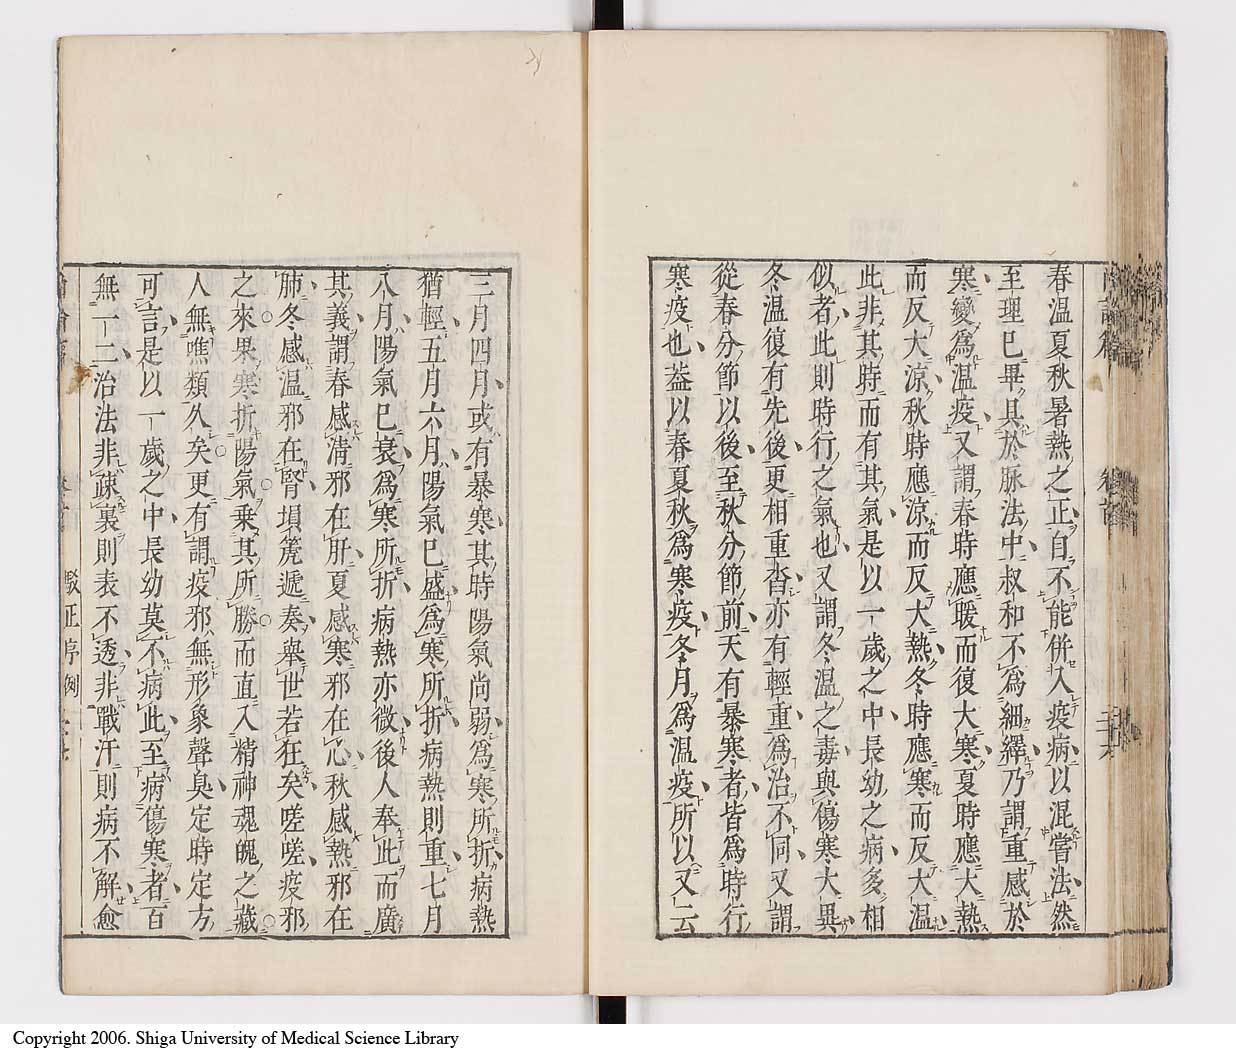 春溫夏秋暑熱之正自不能併入疫病以混嘗法然
至理已畢具於脉法中叔和不爲細繹乃謂重感於
寒變爲溫疫又謂春時應暖而復大寒夏時應大熱
而反大涼秋時應涼而反大熱冬時應寒而反大溫
此非其時而有其氣是以一歲之中長幼之病多相
似者此則時行之氣也又謂冬溫之毒與傷寒大異
冬溫復有先後更相重沓亦有輕重爲治不同又謂
從春分節以後至秋分節前天有暴寒者皆爲時行
寒疫也葢以春夏秋爲寒疫冬月爲溫疫所以又云
三月四月或有暴寒其時陽氣尚弱爲寒所折病熱
猶輕五月六月陽氣已盛爲寒所折病熱則重七月
八月陽氣已衰爲寒所折病熱亦微後人奉此而廣
其義謂春感清邪在肝夏感寒邪在心秋感熱邪在
肺冬感溫邪在腎塤箎遞奏舉世若狂矣嗟嗟疫邪
之來果寒折陽氣乗其所勝而直入精神魂魄之藏
人無噍類久矣更有謂疫邪無形象聲臭定時定方
可言是以一歲之中長幼莫不病此至病傷寒者百
無一二治法非疎裏則表不透非戰汗則病不解愈
駁正序例
Copyright 2006. Shiga University of Medical Science Library